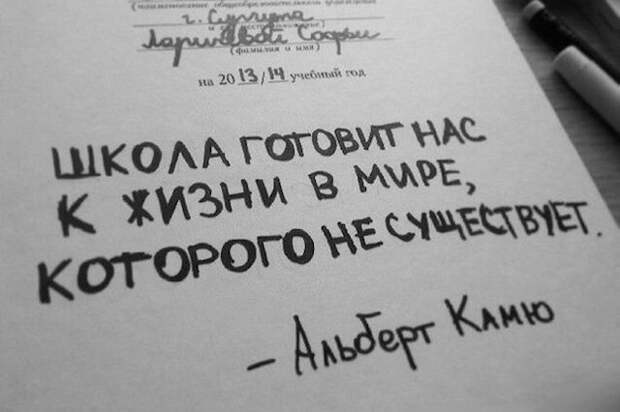 (наименование общеобразовательного учреждения)
г. Сургута
Софьи
(фамилия и имя)
на 2013/14 учебный год
ШКОЛА ГОТОВИТ НАС
К ЖИЗНИ В МИРЕ,
КОТОРОГО НЕ СУЩЕСТВУЕТ.
- Альберт Камю